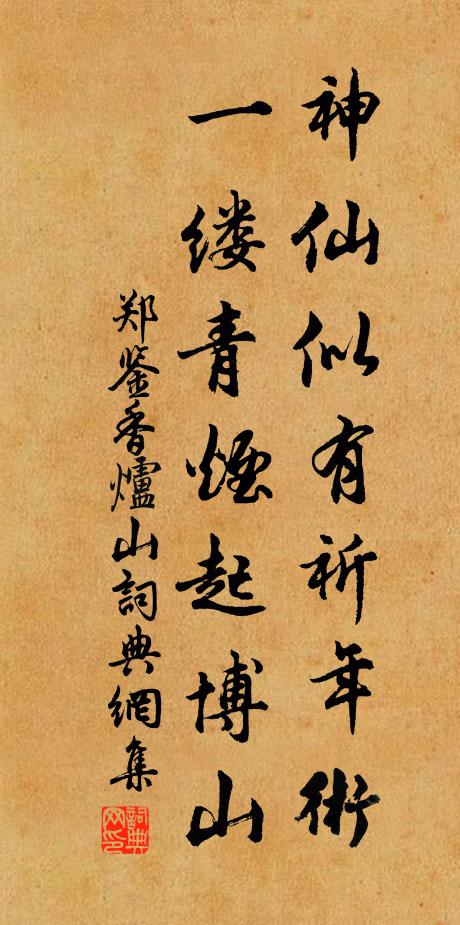 神仙似有祈年術
一缕青煙起博山
郑鉴香爐山詞典網集
詞典网印